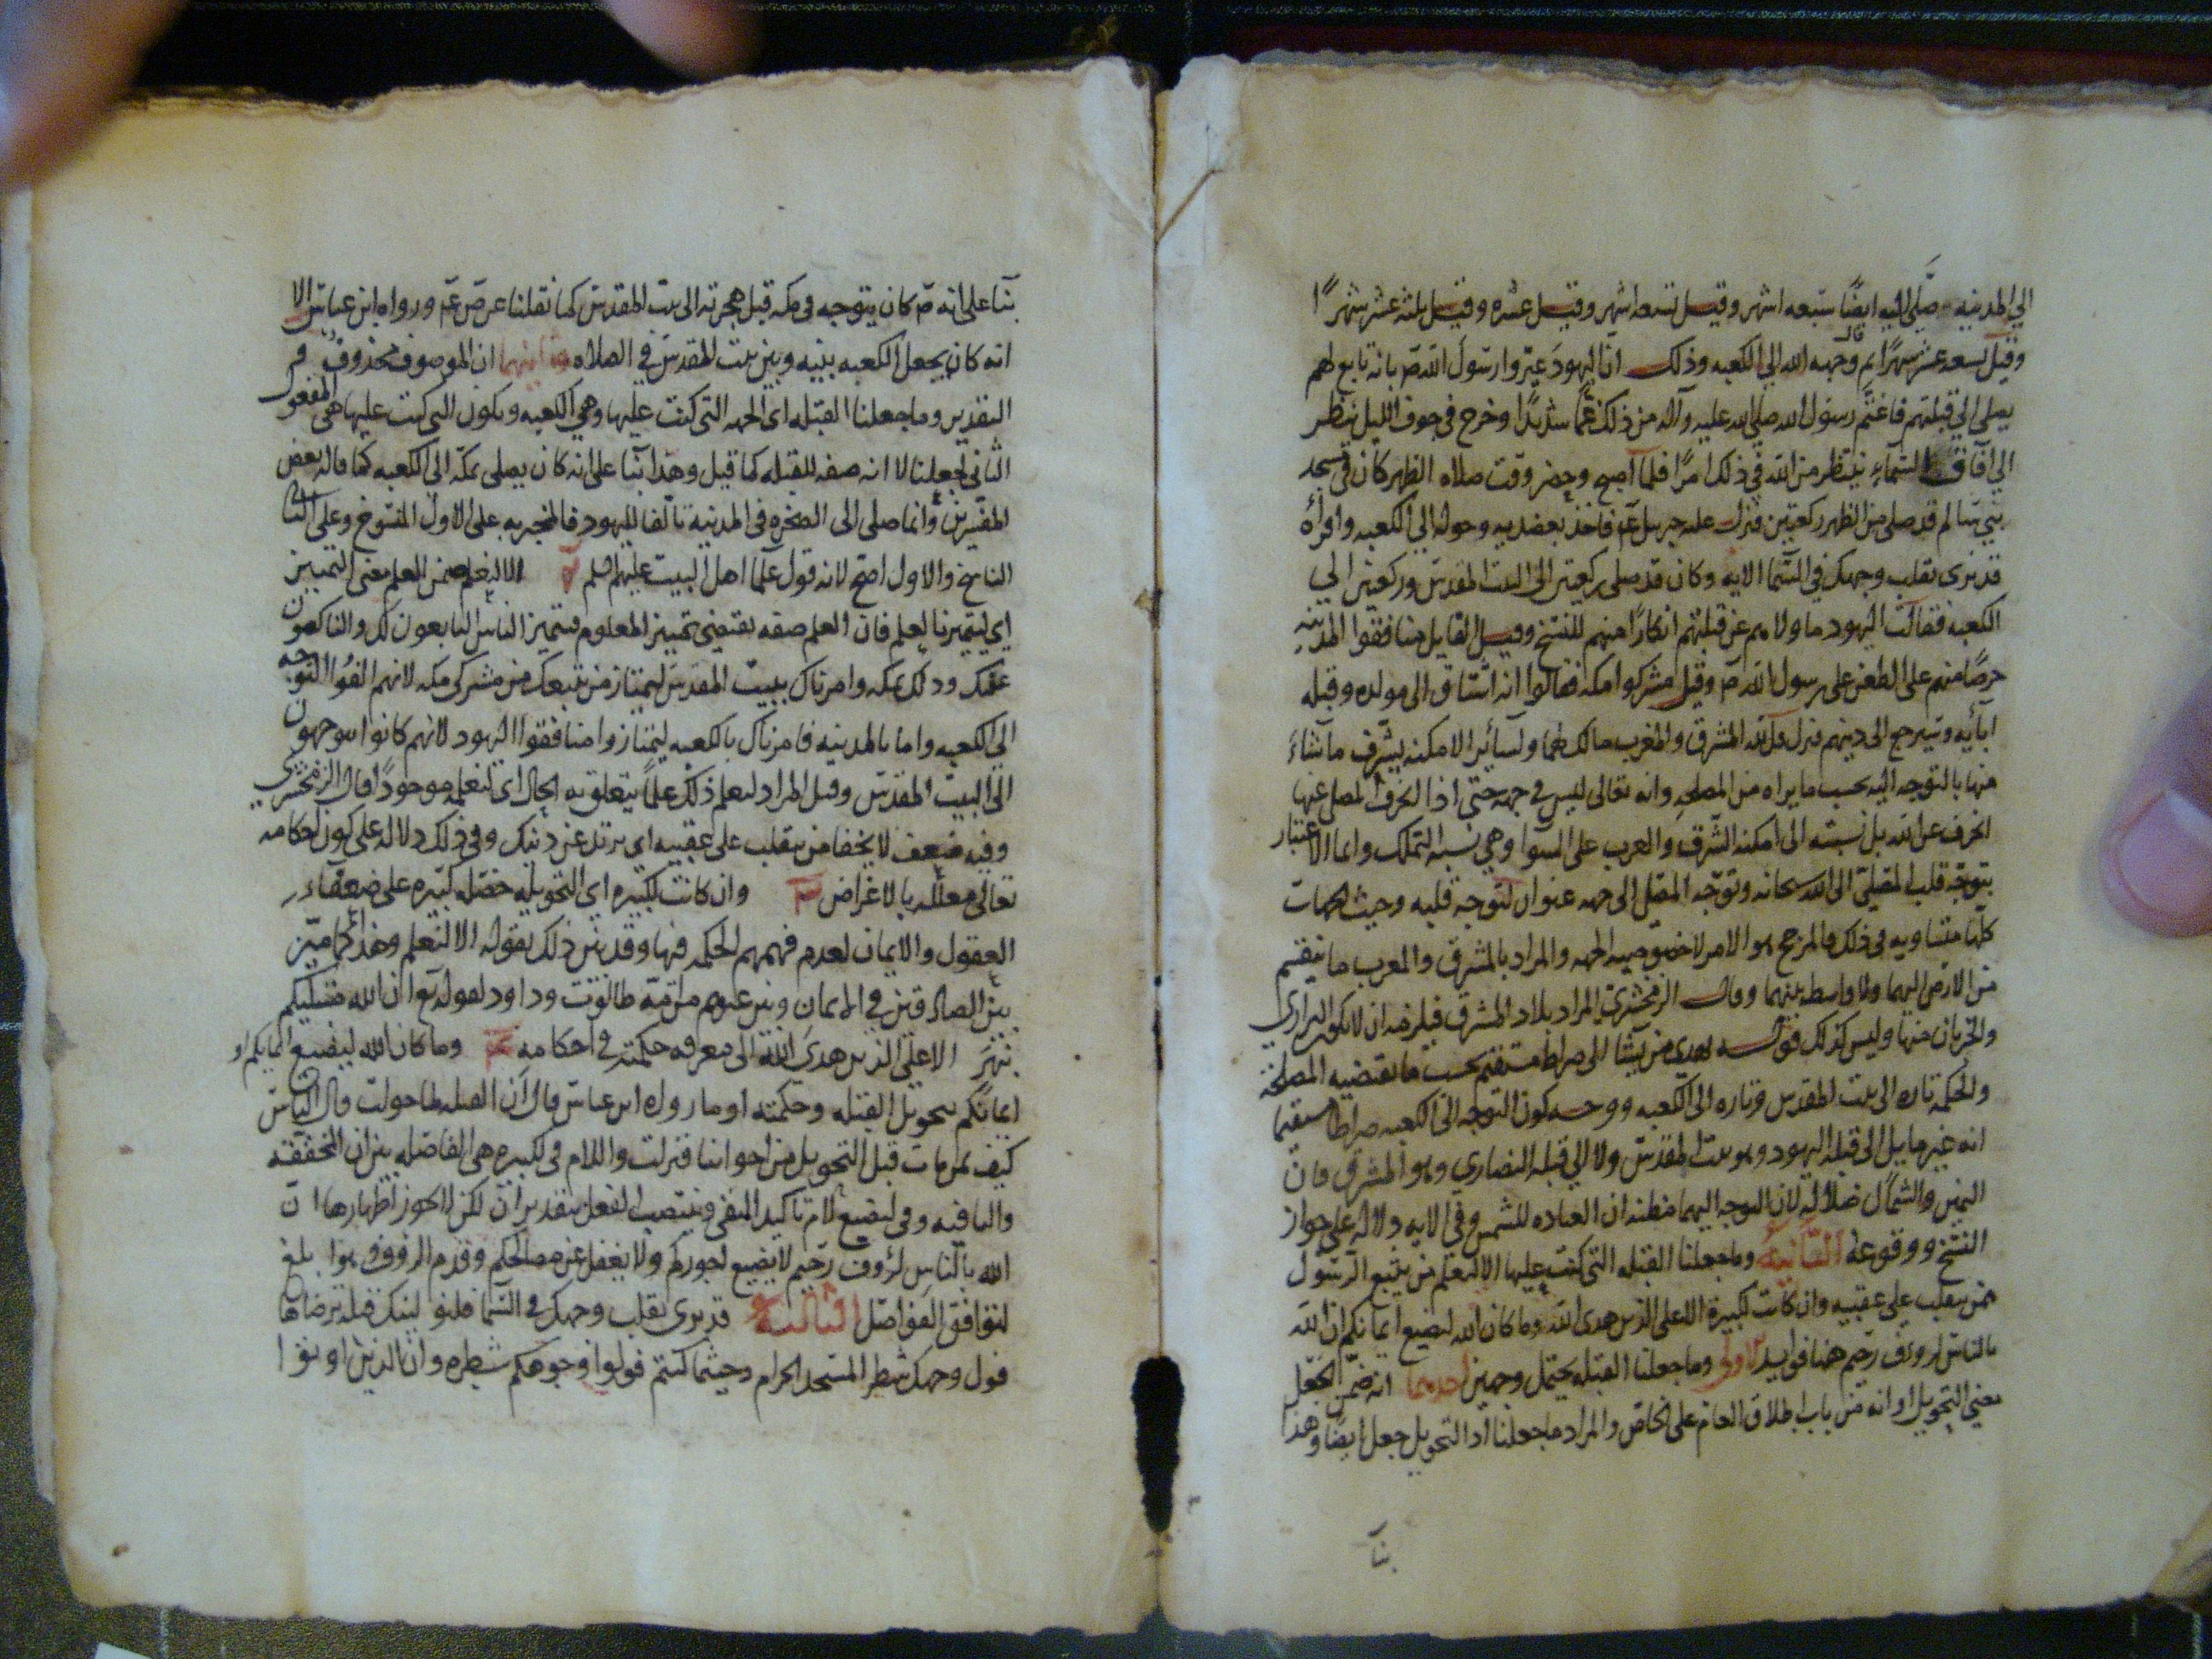 الي المدينه صلى اليه ايضا سبعه اشهر وقيل تسعه اشهر وقيل عشره وقيل ثلثه عشر شهرا
وقيل تسعه عشر شهرا ثم وجهه الله الي الكعبه وذلك ان اليهود عيروا رسول الله ص بانه تابع لهم
يصلي الي قبلتهم فاغتم رسول الله صلى الله عليه وآله من ذلك غما شديدا وخرج في جوف الليل ينظر
الي آفاق السماء ينتظر من الله في ذلك امرا فلما اصبح وحضر وقت صلاه الظهر كان في مسجد
بني سالم قد صلى من الظهر ركعتين فنزل عليه جبريل ع فاخذ بعضديه وحوله الي الكعبه واقراه
قد نرى تقلب وجهك في السما الايه وكان قد صلى ركعتين الى البيت المقدس وركعتين الي
الكعبه فقالت اليهود ما ولاهم عن قبلتهم انكارا منهم للنسخ وقيل القايل منافقوا المدينه
حرصا منهم على الطعن على رسول الله ص وقيل مشركوا مكه فقالوا انه اشتاق الى مولده وقبله
آبائه وسيرجع الى دينهم فنزل قل لله المشرق والمغرب مالكهما ولسائر الامكنه يشرف ما شاء
منها بالتوجه اليه بحسب ما يراه من المصلحه وانه تعالى ليس في جهه حتى اذا انحرف المصلي عنها
انحرف عن الله بل نسبته الى امكنه الشرق والغرب على السوا وهي نسبه التملك وانما الاعتبار
بتوجه قلب المصلي الى الله سبحانه وتوجه المصلي الى جهه عنوان لتوجه قلبه وحيث الجهات
كلها متساويه في ذلك فالمرجح هو الامر لا خصوصيه الجهه والمراد بالمشرق والمغرب ما ينقسم
من الارض اليهما ولا واسطه بينهما وقال الزمخشري المراد بلاد المشرق فيلزمه ان لا يكون البراري
والخربان منها وليس كذلك قوله يهدي من يشا الى صراط مستقيم بحسب ما تقتضيه المصلحه
والحكمه تاره الى بيت المقدس وتاره الى الكعبه ووجه كون التوجه الى الكعبه صراطا مستقيما
انه غير مايل الى قبله اليهود وهو بيت المقدس ولا الي قبله النصاري وهو المشرق فان
اليمين والشمال ضلاله لان التوجه اليهما مظنه ان العباده للشمس وفي الايه دلاله على جواز
النسخ ووقوعه الثانيه وما جعلنا القبله التي كنت عليها الا لنعلم من يتبع الرسول
ممن ينقلب على عقبيه وان كانت لكبيرة الا على الذين هدى الله وما كان الله ليضيع ايمانكم ان الله
بالناس لروف رحيم هنا فوايد الاولى وما جعلنا القبله يحتمل وجهين احدهما انه ضمن الجعل
معنى التحويل او انه من باب اطلاق العام على الخاص والمراد ما جعلنا اذ التحويل جعل ايضا وهذا
بنآ
بنآ على انه ص كان يتوجه في مكه قبل هجرته الى بيت المقدس كما نقلنا عن ص ع ورواه ابن عباس الا
انه كان يجعل الكعبه بينه وبين بيت المقدس في الصلاه وثانيهما ان الموصوف محذوف
التقدير وما جعلنا القبله اى الجهه التي كنت عليها وهي الكعبه ويكون التي كنت عليها هي المفعول
الثاني لجعلنا لا انه صفه للقبله كما قيل وهذا بنآ على انه كان يصلى بمكه الى الكعبه كما قاله بعض
المفسرين وانما صلى الى الصخره في المدينه تالفا لليهود فالمخبر به على الاول المنسوخ وعلى الثاني
الناسخ والاول اصح لانه قول علما اهل البيت عليهم السلم الا لنعلم ضمن العلم معنى التمييز
اي ليتميز بالعلم فان العلم صفه يقتضي تمييز المعلوم فيتميز الناس التابعون لك والناكصون
عنك وذلك بمكه وامرناك ببيت المقدس ليمتاز من يتبعك من مشركي مكه لانهم الفوا التوجه
الي الكعبه واما بالمدينه فامرناك بالكعبه ليمتازوا منافقوا اليهود لانهم كانوا يتوجهون
الى البيت المقدس وقيل المراد لنعلم ذلك علما يتعلق به الحال اى لنعلمه موجودا قال الزمخشري
وفيه ضعف لا يخفا من ينقلب على عقبيه اى يرتد عن دينك وفي ذلك دلاله على كون احكامه
تعالى معلله بالاغراض وان كانت لكبيره اي التحويله خصله كبيره على ضعفاء
العقول والايمان لعدم فهمهم الحكمه فيها وقد بين ذلك بقوله الا لنعلم وهذا كما ميز
بين الصادقين في الايمان وبين غيرهم من امة طالوت وداود لقوله تع ان الله مبتليكم
بنهر الا على الذين هدى الله الى معرفه حكمته في احكامه وما كان الله ليضيع ايمانكم او
ايمانكم بتحويل القبله وحكمته او ما رواه ابن عباس قال ان القبله لما حولت قال الناس
كيف بمن مات قبل التحويل من اخواننا فنزلت واللام في لكبيره هي الفاصله بين ان المخففه
والنافيه وفي ليضيع لام تاكيد النفي وينتصب الفعل بتقدير ان لكن لا يجوز اظهارها ان
الله بالناس لرؤوف رحيم لا يضيع اجوركم ولا يغفل عن مصالحكم وقدم الرؤوف وهو ابلغ
لتوافق الفواصل الثالثه قد نرى تقلب وجهك في السما فلنولينك قبله ترضاها
فول وجهك شطر المسجد الحرام وحيثما كنتم فولوا وجوهكم شطره وان الذين اوتوا